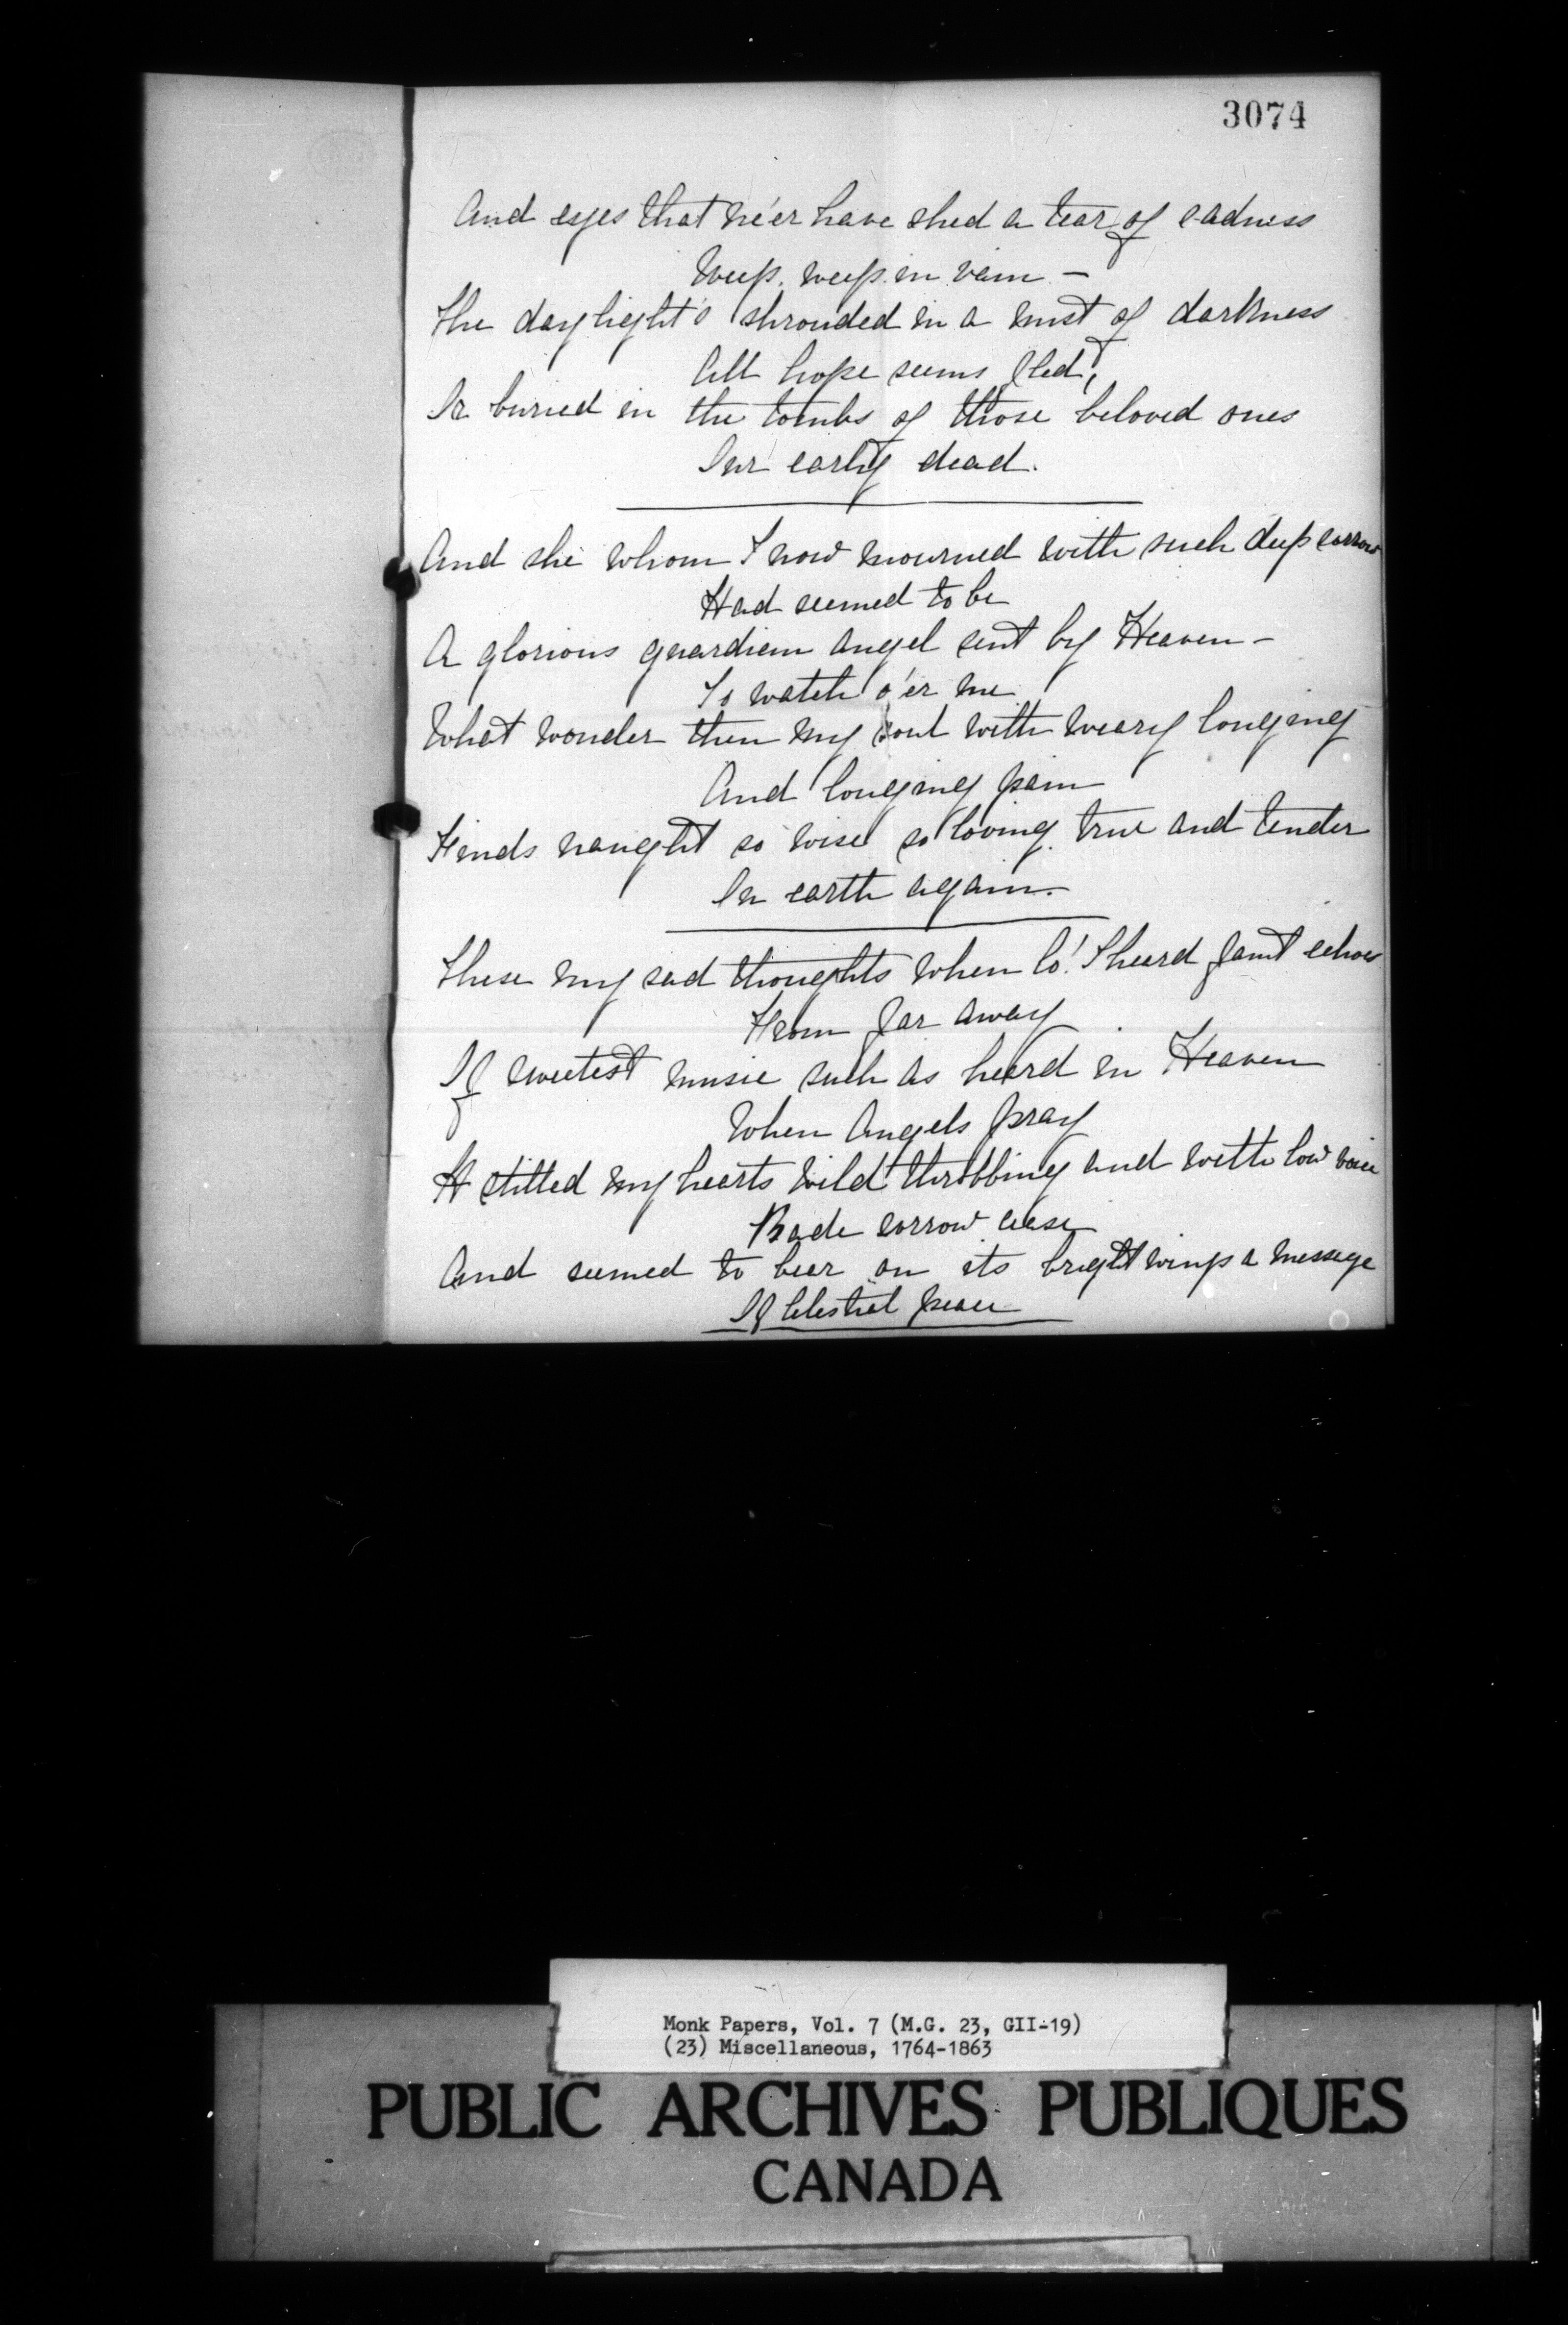 3074
And eyes that ne'er have shed a tear of sadness
Weep, weep in vain –
The daylight's shrouded in a mist of darkness
All hope seems fled,
Is buried in the tombs of those beloved ones
Our early dead.
And she whom I now mourned with such deep sorrow
Had seemed to be
A glorious guardian angel sent by Heaven –
To watch o'er me
What wonder then my soul with weary longing
And longing pain
Finds naught so wise so loving true and tender
On earth again.
These my sad thoughts when lo! I heard faint echoes
From far away
Of sweetest music such as heard in Heaven
When Angels pray
It stilled my hearts wild throbbing and with low voice
Bade sorrow cease
And seemed to bear on its bright wings a message
Of Celestial peace
Monk Papers, Vol. 7 (M.G. 23, GII-19)
(23) Miscellaneous, 1764-1863
PUBLIC ARCHIVES PUBLIQUES
CANADA